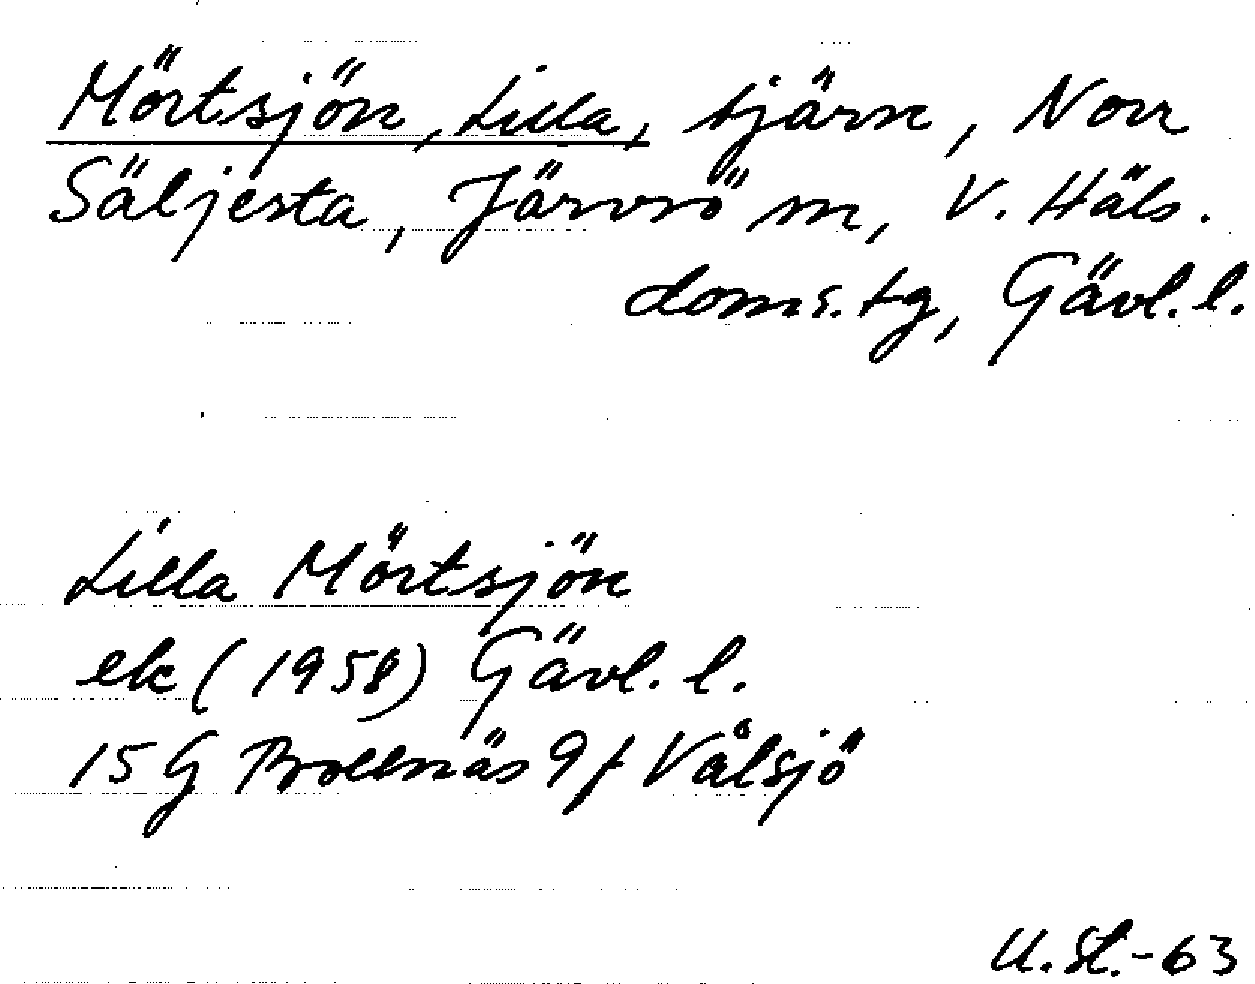 Mörtsjön, Lilla, tjärn, Norr
Säljesta, Järvsö sn, V. Häls.
doms.tg, Gävl.l.
Lilla Mörtsjön
ek (1958) Gävl. l.
15 G Bollnäs 9 f Vålsjö
U.St.-63